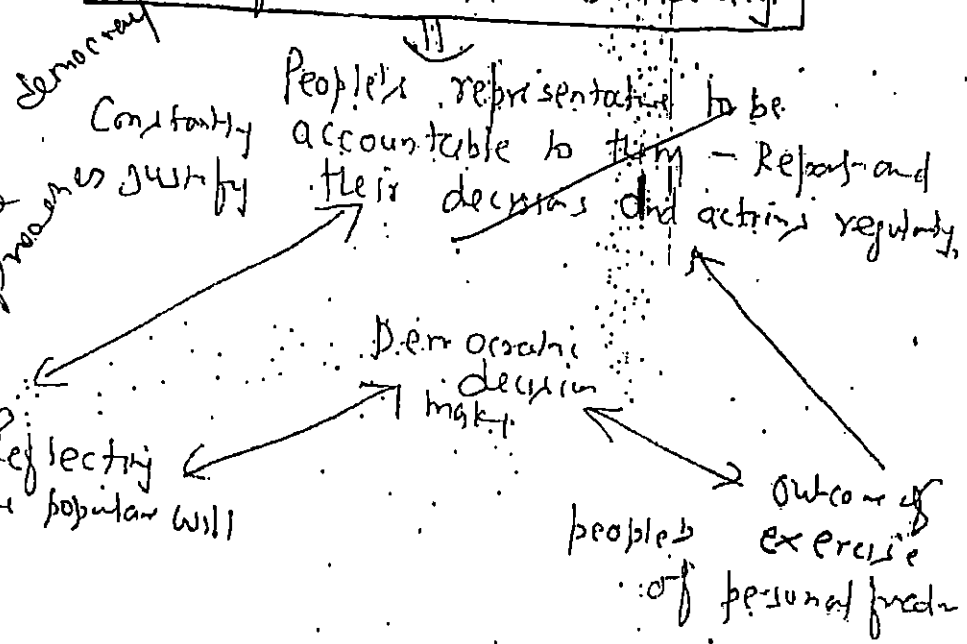 democracy
People's representative to be
Constantly accountable to them - Report and
justify their decisions and actions regularly,
processes
Democratic
decision
making
Reflecting
popular will
Outcome of
people's exercise
of personal